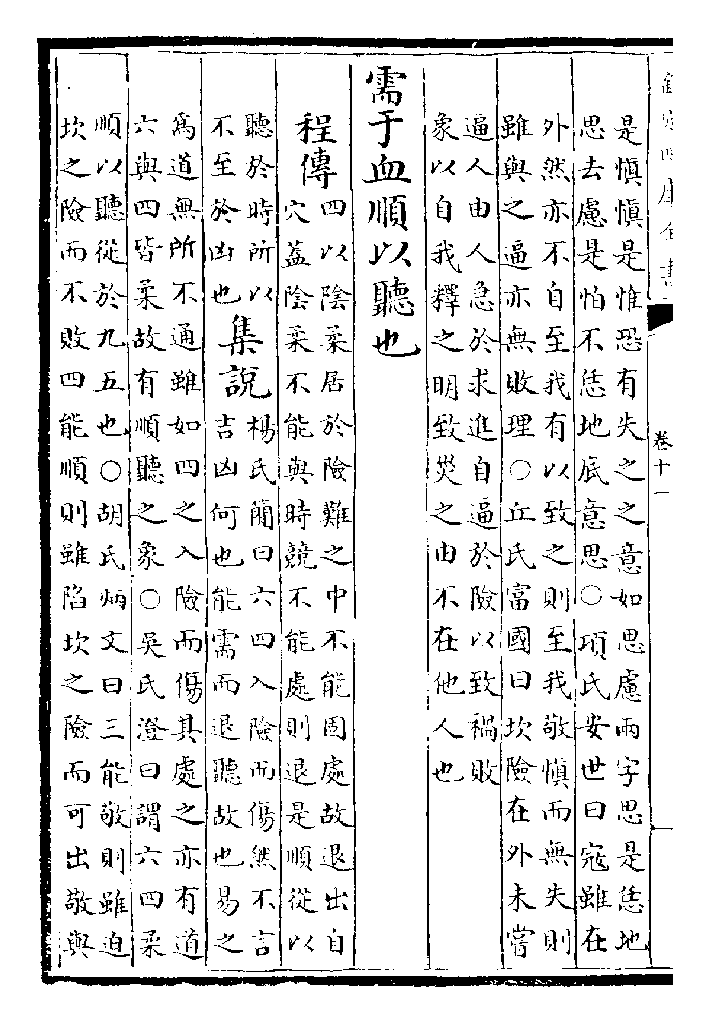 欽定四庫全書
卷十一
是慎慎是惟恐有失之之意如思慮兩字思是恁地
思去慮是怕不恁地底意思○項氏安世曰寇雖在
外然亦不自至我有以致之則至我敬慎而無失則
雖與之逼亦無敗理○丘氏富國曰坎險在外未嘗
逼人由人急於求進自逼於險以致禍敗
象以自我釋之明致災之由不在他人也
需于血順以聽也
程傳
四以陰柔居於險難之中不能固處故退出自
穴蓋陰柔不能與時競不能處則退是順從以
聽於時所以
不至於凶也
集説
楊氏簡曰六四入險而傷然不言
吉凶何也能需而退聽故也易之
為道無所不通雖如四之入險而傷其處之亦有道
六與四皆柔故有順聽之象○吳氏澄曰謂六四柔
順以聽從於九五也○胡氏炳文曰三能敬則雖迫
坎之險而不敗四能順則雖陷坎之險而可出敬與